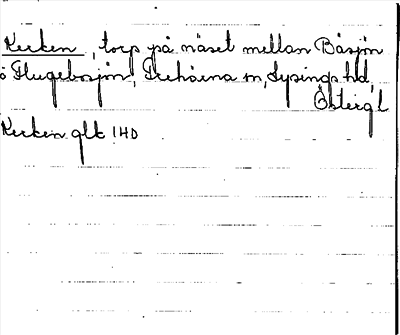 Kerken, torp på näset mellan Båsjön
o Flugebosjön, Trehörna sn, Lysings hd,
Östergl
Kerken glt 140